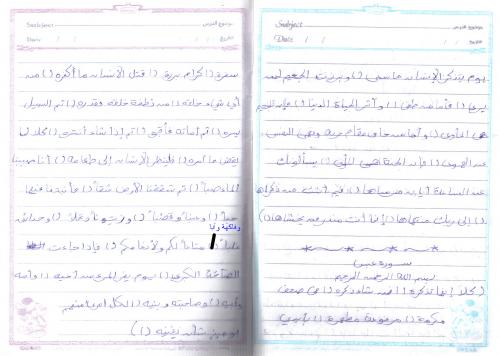 موضوع الدرس Subject
تاريخ Date / /
يوم يتذكر الإنسان ما سعى () وبرزت الجحيم لمن
يرى () فأما من طغى () وآثر الحياة الدنيا () فإن الجحيم
هي المأوى () وأما من خاف مقام ربه ونهى النفس
عن الهوى () فإن الجنة هي المأوى () يسألونك
عن الساعة أيان مرساها () فيم أنت من ذكراها
() إلى ربك منتهاها () إنما أنت منذر من يخشاها ()
سورة عبس
بسم الله الرحمن الرحيم
كلا إنها تذكرة () فمن شاء ذكره () في صحف
مكرمة () مرفوعة مطهرة () بأيدي
موضوع الدرس Subject
تاريخ Date / /
سفرة () كرام بررة () قتل الإنسان ما أكفره () من
أي شيء خلقه () من نطفة خلقه فقدره () ثم السبيل
يسره () ثم أماته فأقبره () ثم إذا شاء أنشره () كلا لما
يقض ما أمره () فلينظر الإنسان إلى طعامه () أنا صببنا
الماء صباً () ثم شققنا الأرض شقاً () فأنبتنا فيها
حباً () وعنباً وقضباً () وزيتوناً ونخلاً () وحدائق
وفاكهة وأبا
غلباً () متاعاً لكم ولأنعامكم () فإذا جاءت
الصاخة الكبرى () يوم يفر المرء من أخيه () وأمه
وأبيه () وصاحبته وبنيه () لكل امرئ منهم
يومئذ شأن يغنيه ()